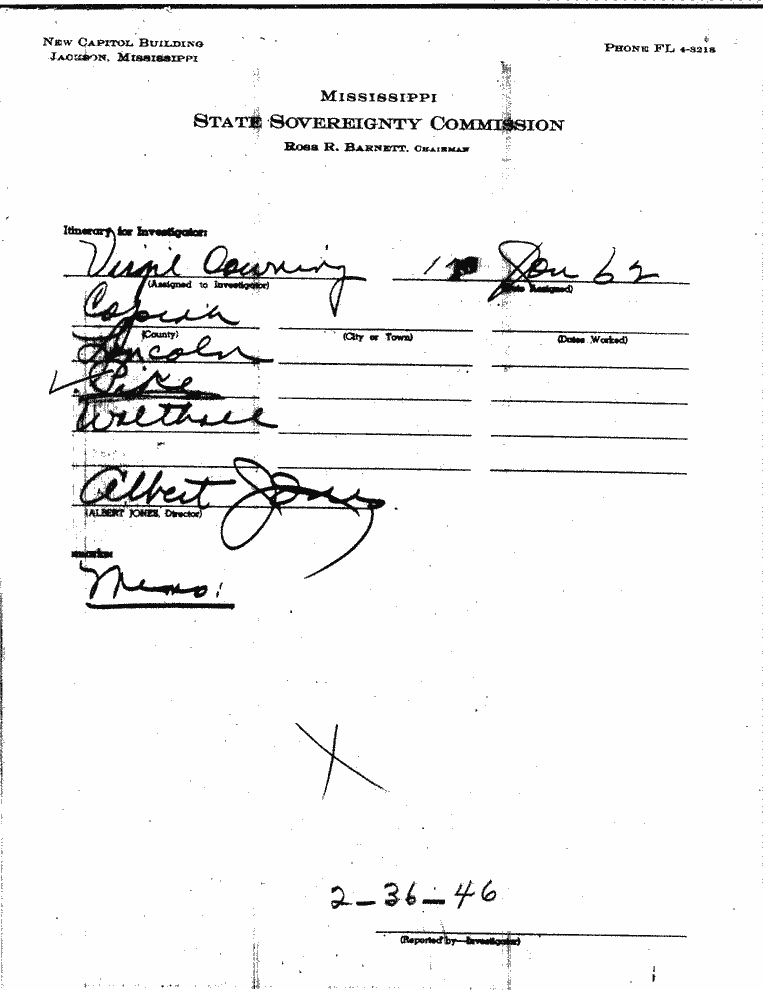 NEW CAPITOL BUILDING
JACKSON, MISSISSIPPI
PHONE FL 4-3218
MISSISSIPPI
STATE SOVEREIGNTY COMMISSION
ROSS R. BARNETT, CHAIRMAN
Itinerary for Investigator:
Virgil Downing Jan 62
(Assigned to Investigator) (Date Assigned)
Copiah
(County) (City or Town) (Dates Worked)
Lincoln
Pike
Walthall
Albert Jones
(ALBERT JONES, Director)
Memo:
2-36-46
(Reported by-Investigator)